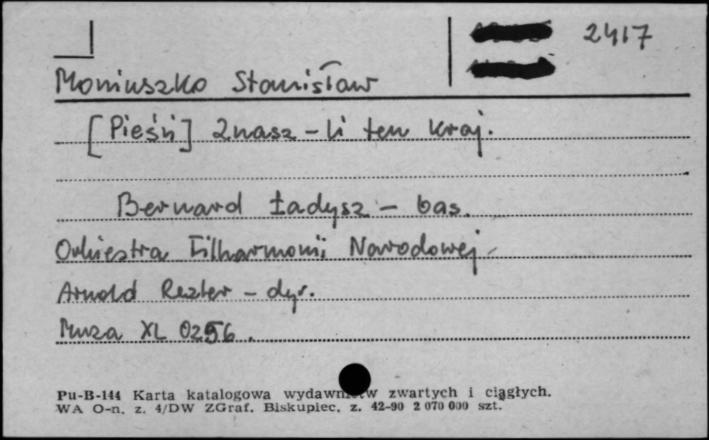 2417
Moniuszko Stanisław
[Pieśń] Znasz-li ten kraj.
Bernard Ładysz - bas.
Orkiestra Filharmonii Narodowej
Arnold Rezler - dyr.
Muza XL 0256.
Pu-B-144 Karta katalogowa wydawnictw zwartych i ciągłych.
WA O-n. z. 4/DW ZGraf. Biskupiec, z. 42-90 2 070 000 szt.